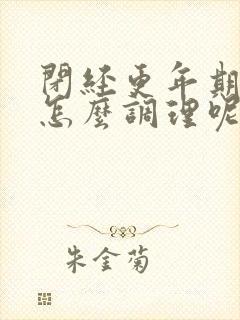 閉經更年期
怎麼調理呢
朱金菊